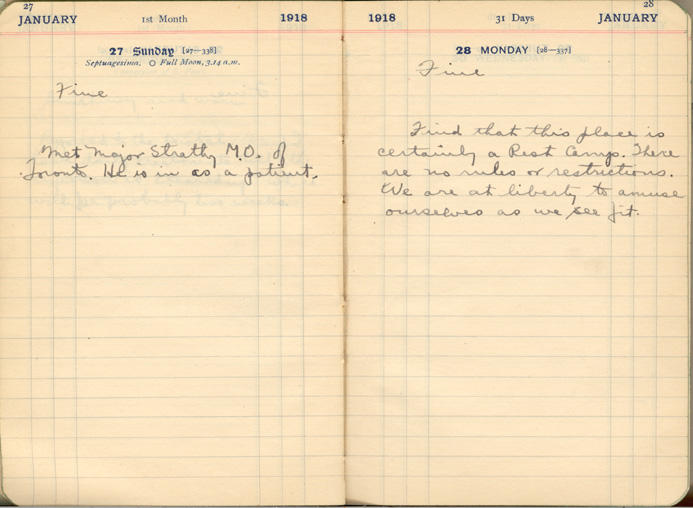 27
JANUARY 1st Month 1918
27 Sunday [27—338]
Septuagesima. O Full Moon, 3.14 a.m.
Fine
Met Major Strathy M.O. of
Toronto. He is in as a patient.
28
1918 31 Days JANUARY
28 MONDAY [28—337]
Fine
Find that this place is
certainly a Rest Camp. There
are no rules or restrictions.
We are at liberty to amuse
ourselves as we see fit.